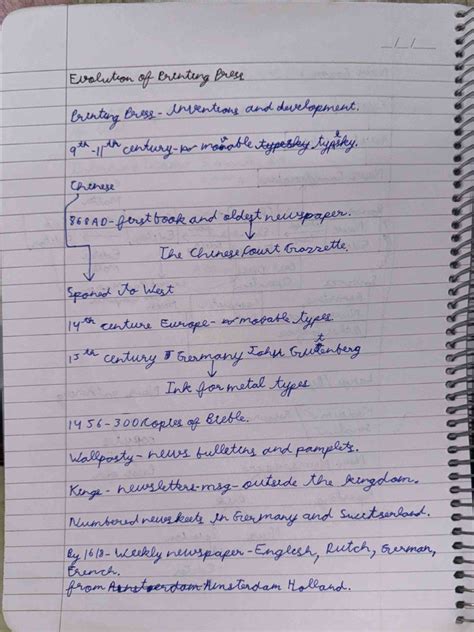 _/_/_
Evolution of Printing Press
Printing Press - Inventions and development.
9th-11th century - movable typesky typesky.
Chinese
868 AD - first book and oldest newspaper.
The Chinese Court Grazzette.
Spared to West
14th centure Europe - movable types
15th century Germany John Grutenberg
Ink for metal types
1456 - 300 Copies of Bieble.
Wallposty - news bulletins and pamplets.
Kings - newsletters - msg - outside the kingdom.
Numbered newskeets in Germany and Switserland.
By 1618 - Weekly newspaper - English, Dutch, German,
French.
from Amsterdam Amsterdam Holland.